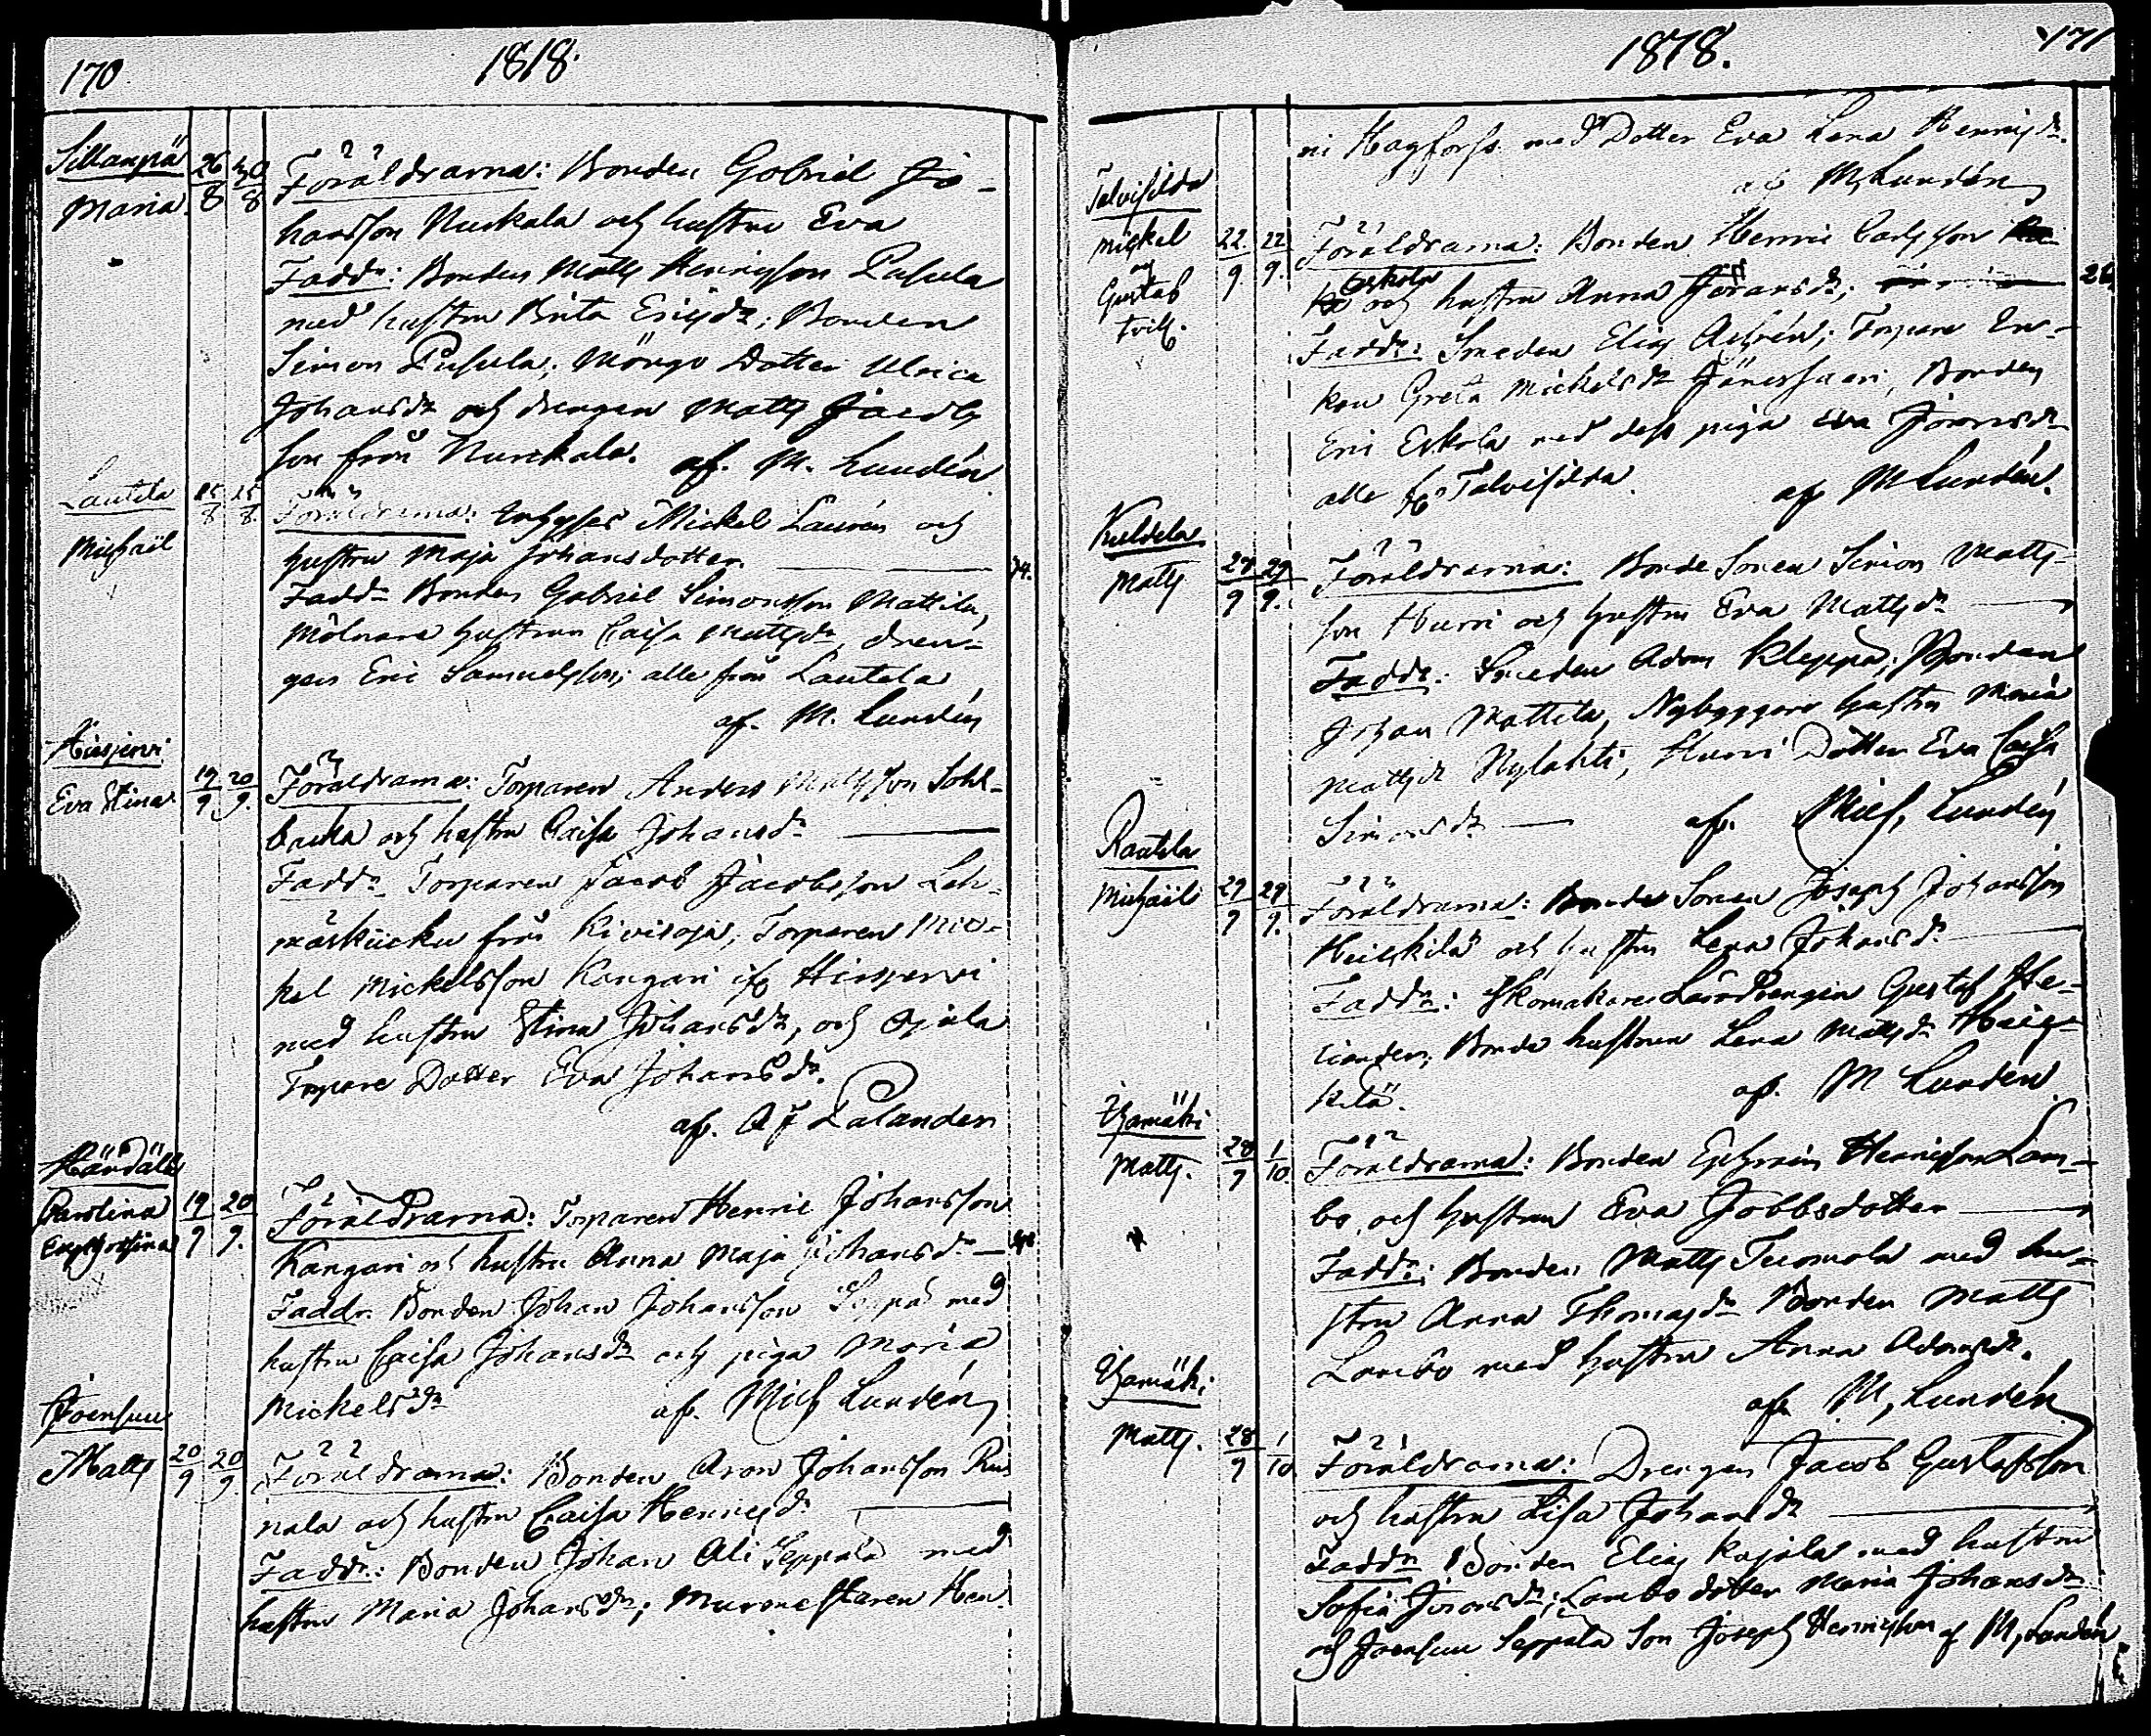 170
1818.
Sillanpä
Maria.
26/8 30/8
Föräldrarna: Bonden Gabriel Jo-
hansson Nuckala och hustru Eva
Faddr: Bonden Matts Henricsson Pusula
med hustru Brita Ericsdr; Bonden
Simon Pusula; Dotter Ulrica
Johansdr och drengen Matts Jacobs
son från Nurckala. af. M. Lundén
Lautela
Michaël
25/8 25/8
Föräldrarna: Mickel Laurén och
hustru Maja Johansdotter.
34.
Faddr Bonden Gabriel Simonsson Mattila,
Mölnare hustrun Caisa Mattsdr, dren-
gen Eric Samuelsson; alle från Lautela
af. M. Lundén
Hirsjervi
Eva Stina
19/9 20/9.
Föräldrarna: Torparen Anders Mattsson Sohl-
backa och hustru Caisa Johansdr
Faddr Torparen Jacob Jacobsson Leh-
mäskucku från Kivisoja; Torparen Mic-
kel Mickelsson Kangari if Hirsjervi
med hustru Stina Johansdr, och Ojala
Torpare Dotter Eva Johansdr.
af. A J Palander
Händälä
Carolina
Euphrosina
19/9 20/9.
Föräldrarna: Torparen Henric Johansson
Kangari och hustru Anna Maja Johansdr
Faddr. Bonden Johan Johansson Seppä med
hustru Caisa Johansdr och piga Maria
Mickelsdr af. Mich Lundén
Joensuu
Matts
20/9 20/9
Föräldrarna: Bonden Aron Johansson Ru
nala och hustru Caisa Henricsdr
Faddr: Bonden Johan Ali Seppälä med
hustru Maria Johansdr; Muremestaren Hen-
1818.
171
ric Hagfors med Dotter Eva Lena Henricsdr.
af M Lundén
Talvisilda
Mickel
och
Gustaf
tvill.
22/9 22/9.
Föräldrarna: Bonden Henric Carlsson
Eskola och hustru Anna Jöransdr;
26.
Faddr: Smeden Elias Achrén; Torpare En-
kan Greta Mickelsdr Jänessaari, Bonden
Eric Eskola med dess piga Eva Jöransdr
alle fr Talvisilda. af M Lundén.
Kuldela
Matts
29/9 29/9.
Föräldrarna: Bonde Sonen Simon Matts-
son Hurri och hustru Eva Mattsdr
Faddr: Smeden Adam Kleppa; Bonden
Johan Mattila, Nybyggare hustru Maria
Mattsdr Nylahti, Hurri Dotter Eva Caisa
Simonsdr af. Mich, Lundén
Rautela
Michaël
29/9 29/9.
Föräldrarna: Bonde Sonen Joseph Johansson
Heickilä och hustru Lena Johansdr
Faddr: Skomakare Lärodrengen Gustaf He-
lander, Bonde hustrun Lena Mattsdr Heic-
kilä. af. M Lundén
Ihamäki
Matts.
28/9 1/10
Föräldrarna: Bonden Ephraim Henricsson Lam-
bo, och hustrun Eva Jobbsdotter
Faddr: Bonden Matts Tuomola med hu-
stru Anna Thomasdr Bonden Matts
Lambo med hustru Anna Adamsdr.
af M, Lundén
Ihamäki
Matts.
28/9 1/10
Föräldrarna: Drengen Jacob Gustafsson
och hustru Lisa Johansdr
Faddr Bonden Elias Kojola med hustru
Sofia Jöransdr; Lambo dotter Maria Johansdr
och Joensuu Seppälä Son Joseph Henricsson af M, Lundén